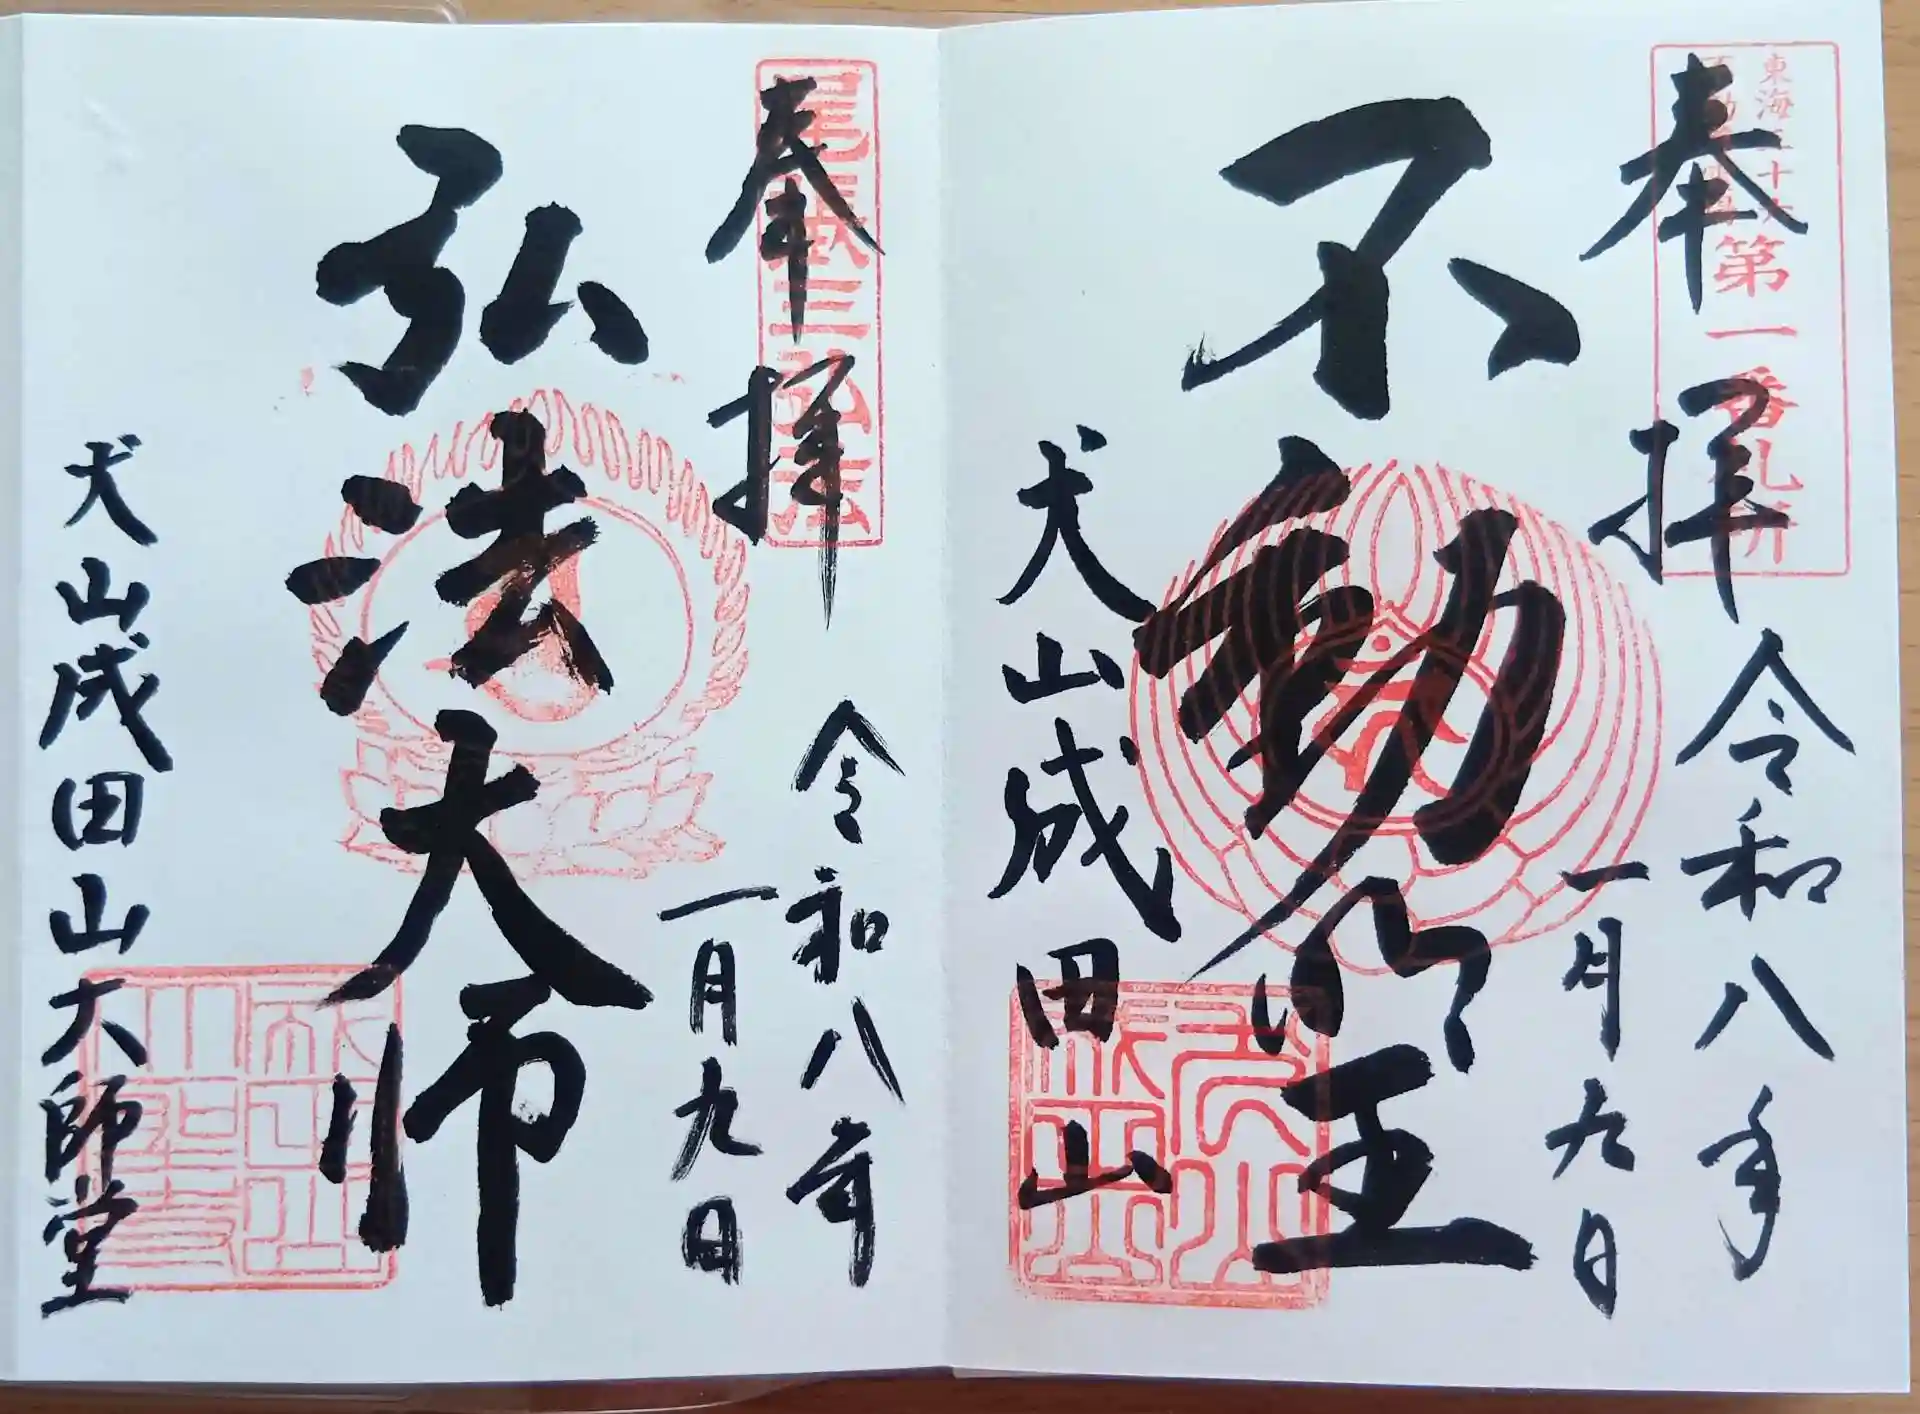 東海三十六
不動尊霊場
第一番札所
奉拝
令和八年
一月九日
不動明王
犬山成田山
尾張三弘法
奉拝
令和八年
一月九日
弘法大師
犬山成田山大師堂